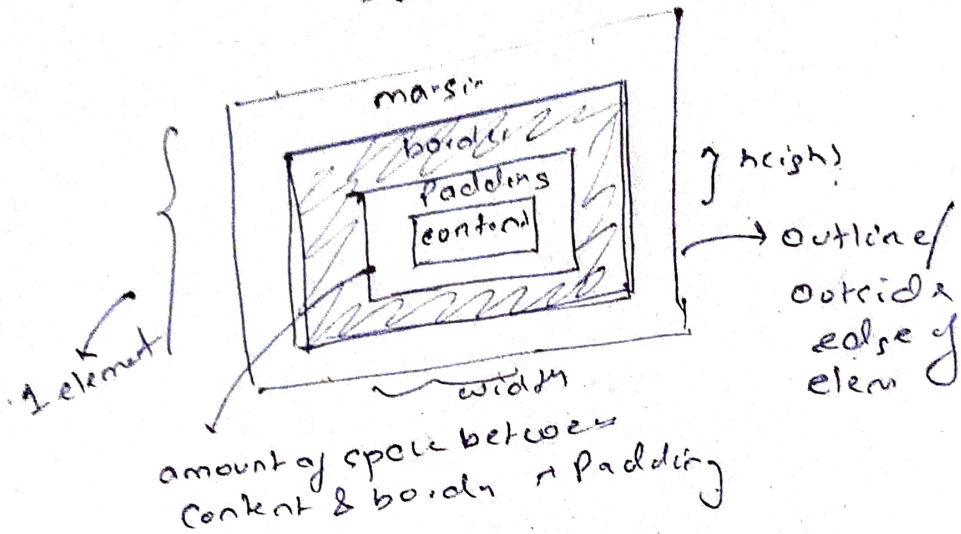 margin
border
Padding
content
} height
→ outline/
outside
edge of
elem
1 element
width
amount of space between
content & border → Padding